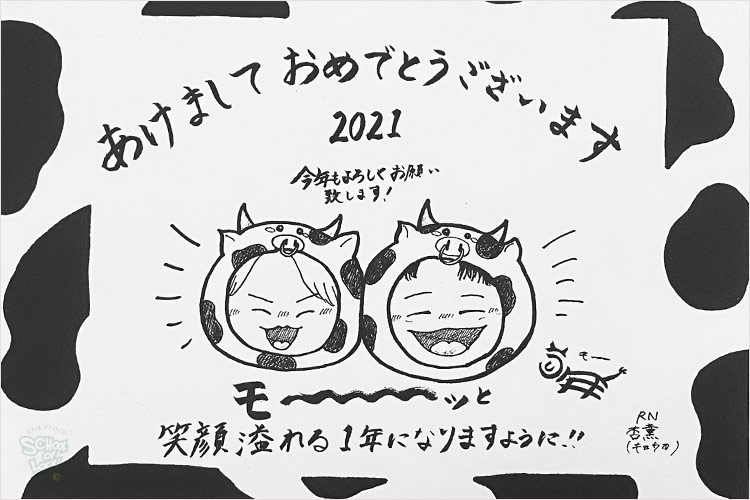 あけまして おめでとうございます
2021
今年もよろしくお願い
致します!
モー
モ〜〜〜ッと
笑顔溢れる1年になりますように!!
RN
杏薫
SCHOOL OF LOCK!